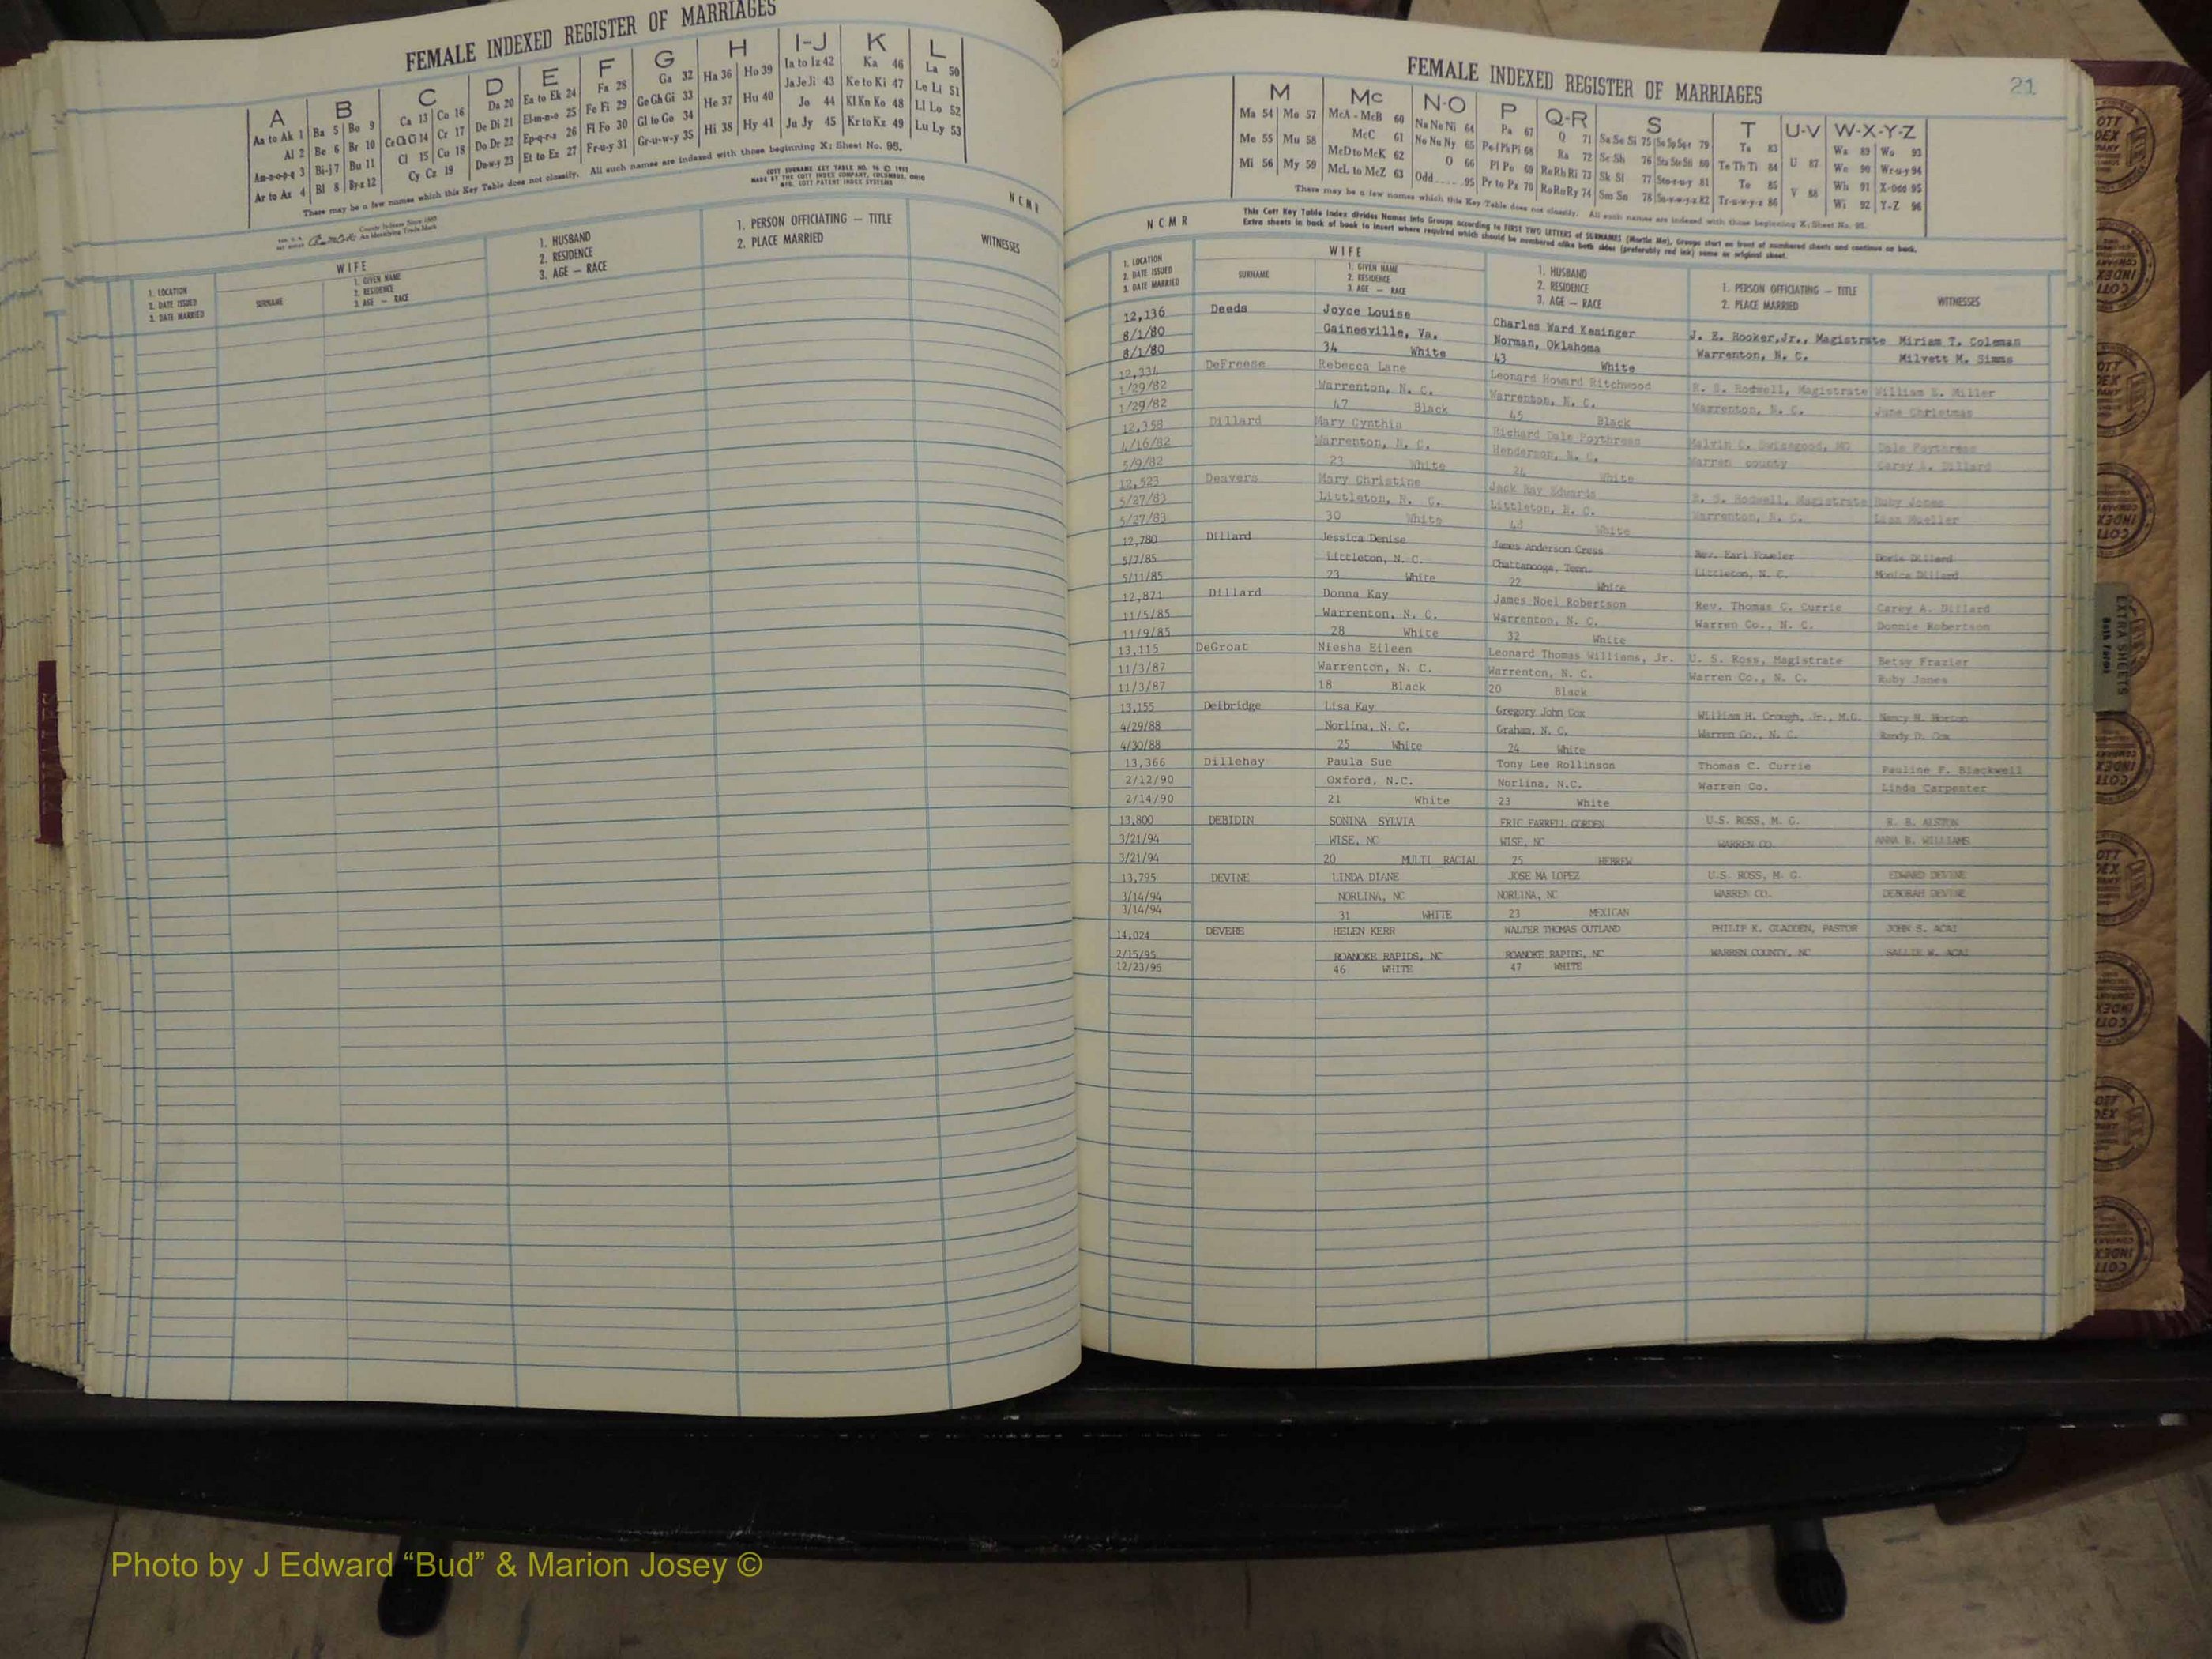 FEMALE INDEXED REGISTER OF MARRIAGES
A B C D E F G H I-J K L
Aa to Ak 1 Ba 5 Bo 9 Ca 13 Co 16 Da 20 Ea to Ek 24 Fa 28 Ga 32 Ha 36 Ho 39 Ia to Iz 42 Ka 46 La 50
Al 2 Be 6 Br 10 Ce Ch Ci 14 Cr 17 De Di 21 El-m-n-o 25 Fe Fi 29 Ge Gh Gi 33 He 37 Hu 40 Ja Je Ji 43 Ke to Ki 47 Le Li 51
Am-n-o-p-q 3 Bi-j 7 Bu 11 Cl 15 Cu 18 Do Dr 22 Ep-q-r-s 26 Fl Fo 30 Gl to Go 34 Hi 38 Hy 41 Jo 44 Kl Kn Ko 48 Ll Lo 52
Ar to Az 4 Bl 8 By-z 12 Cy Cz 19 Du-w-y 23 Et to Ez 27 Fr-u-y 31 Gr-u-w-y 35 Ju Jy 45 Kr to Kz 49 Lu Ly 53
There may be a few names which this Key Table does not classify. All such names are indexed with those beginning X; Sheet No. 95.
COTT SURNAME KEY TABLE NO. 96 © 1952
MADE BY THE COTT INDEX COMPANY, COLUMBUS, OHIO
MFG. COTT PATENT INDEX SYSTEMS
County Indexes Since 1888
An Identifying Trade Mark
N C M R
1. LOCATION
2. DATE ISSUED
3. DATE MARRIED
WIFE
SURNAME
1. GIVEN NAME
2. RESIDENCE
3. AGE — RACE
1. HUSBAND
2. RESIDENCE
3. AGE — RACE
1. PERSON OFFICIATING — TITLE
2. PLACE MARRIED
WITNESSES
FEMALE INDEXED REGISTER OF MARRIAGES 21
M Mc N-O P Q-R S T U-V W-X-Y-Z
Ma 54 Mo 57 McA - McB 60 Na Ne Ni 64 Pa 67 Q 71 Sa Se Si 75 So Sp Sq-r 79 Ta 83 Wa 89 Wo 93
Me 55 Mu 58 McC 61 No Nu Ny 65 Pe-f Ph Pi 68 Ra 72 Sc Sh 76 Sta Ste Sti 80 Te Th Ti 84 U 87 We 90 Wr-u-y 94
Mi 56 My 59 McD to McK 62 O 66 Pl Po 69 Re Rh Ri 73 Sk Sl 77 Sto-r-u-y 81 To 85 V 88 Wh 91 X-Odd 95
McL to McZ 63 Odd 95 Pr to Pz 70 Ro Ru Ry 74 Sm Sn 78 Su-v-w-y-z 82 Tr-u-w-y-z 86 Wi 92 Y-Z 96
There may be a few names which this Key Table does not classify. All such names are indexed with those beginning X; Sheet No. 95.
N C M R
This Cott Key Table Index divides Names into Groups according to FIRST TWO LETTERS of SURNAMES (Martin Ma), Groups start on front of numbered sheets and continue on back.
Extra sheets in back of book to insert where required which should be numbered alike both sides (preferably red ink) same as original sheet.
1. LOCATION
2. DATE ISSUED
3. DATE MARRIED
WIFE
SURNAME
1. GIVEN NAME
2. RESIDENCE
3. AGE — RACE
1. HUSBAND
2. RESIDENCE
3. AGE — RACE
1. PERSON OFFICIATING — TITLE
2. PLACE MARRIED
WITNESSES
12,136 Deeds Joyce Louise Charles Ward Kesinger J. E. Rooker, Jr., Magistrate Miriam T. Coleman
8/1/80 Gainesville, Va. Norman, Oklahoma Warrenton, N. C. Milvett M. Simms
8/1/80 34 White 43 White
12,334 DeFreese Rebecca Lane Leonard Howard Ritchwood R. S. Rodwell, Magistrate William E. Miller
1/29/82 Warrenton, N. C. Warrenton, N. C. Warrenton, N. C. June Christmas
1/29/82 47 Black 45 Black
12,358 Dillard Mary Cynthia Richard Dale Poythress Melvin C. Swicegood, MG Dale Poythress
4/16/82 Warrenton, N. C. Henderson, N. C. Warren county Carey A. Dillard
5/9/82 23 White 24 White
12,523 Deavers Mary Christine Jack Ray Edwards R. S. Rodwell, Magistrate Ruby Jones
5/27/83 Littleton, N. C. Littleton, N. C. Warrenton, N. C. Lisa Mueller
5/27/83 30 White 48 White
12,780 Dillard Jessica Denise James Anderson Cress Rev. Earl Fowler Doris Dillard
5/7/85 Littleton, N. C. Chattanooga, Tenn. Littleton, N. C. Monica Dillard
5/11/85 23 White 22 White
12,871 Dillard Donna Kay James Noel Robertson Rev. Thomas C. Currie Carey A. Dillard
11/5/85 Warrenton, N. C. Warrenton, N. C. Warren Co., N. C. Donnie Robertson
11/9/85 28 White 32 White
13,115 DeGroat Niesha Eileen Leonard Thomas Williams, Jr. U. S. Ross, Magistrate Betsy Frazier
11/3/87 Warrenton, N. C. Warrenton, N. C. Warren Co., N. C. Ruby Jones
11/3/87 18 Black 20 Black
13,155 Delbridge Lisa Kay Gregory John Cox William H. Crough, Jr., M.G. Nancy N. Horton
4/29/88 Norlina, N. C. Graham, N. C. Warren Co., N. C. Randy D. Cox
4/30/88 25 White 24 White
13,366 Dillehay Paula Sue Tony Lee Rollinson Thomas C. Currie Pauline F. Blackwell
2/12/90 Oxford, N.C. Norlina, N.C. Warren Co. Linda Carpenter
2/14/90 21 White 23 White
13,800 DEBIDIN SONINA SYLVIA ERIC FARRELL GORDEN U.S. ROSS, M. G. R. B. ALSTON
3/21/94 WISE, NC WISE, NC WARREN CO. ANNA B. WILLIAMS
3/21/94 20 MULTI RACIAL 25 HEBREW
13,795 DEVINE LINDA DIANE JOSE MA LOPEZ U.S. ROSS, M. G. EDWARD DEVINE
3/14/94 NORLINA, NC NORLINA, NC WARREN CO. DEBORAH DEVINE
3/14/94 31 WHITE 23 MEXICAN
14,024 DEVERE HELEN KERR WALTER THOMAS OUTLAND PHILIP K. GLADDEN, PASTOR JOHN S. ACAI
2/15/95 ROANOKE RAPIDS, NC ROANOKE RAPIDS, NC WARREN COUNTY, NC SALLIE W. ACAI
12/23/95 46 WHITE 47 WHITE
EXTRA SHEETS
Both Forms
Photo by J Edward “Bud” & Marion Josey ©